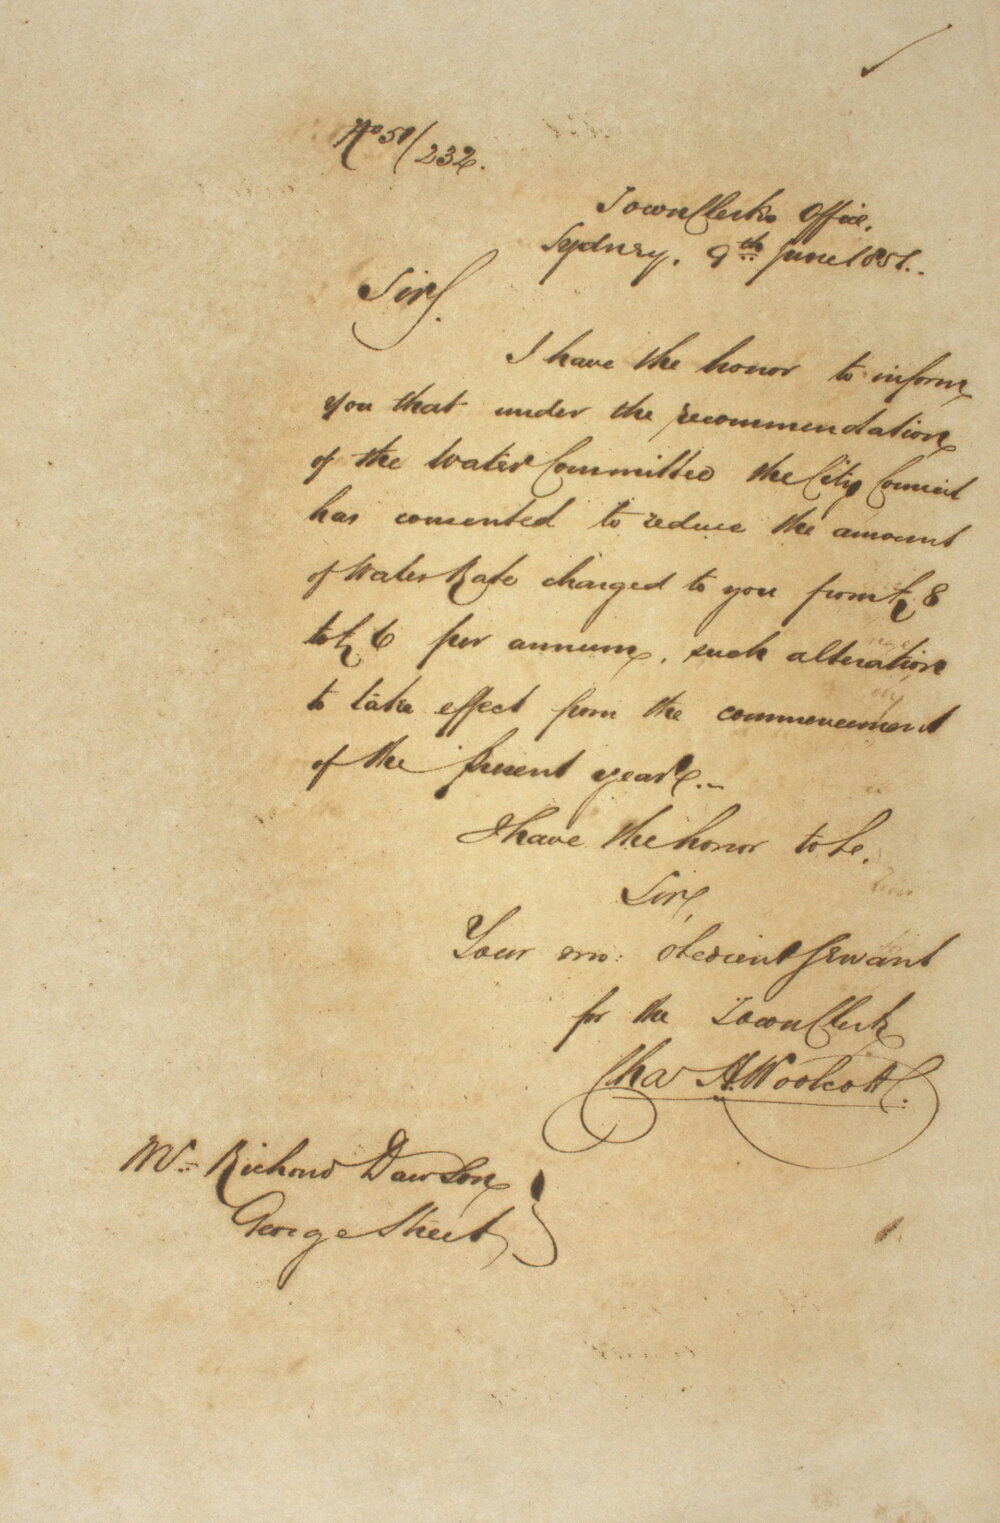 No 51/232.
Town Clerks Office,
Sydney, 9th June 1851.
Sir,
I have the honor to inform
you that under the recommendation
of the Water Committee the City Council
has consented to reduce the amount
of Water Rate charged to you from £8
to £6 per annum, such alteration
to take effect from the commencement
of the present year.
I have the honor to be,
Sir,
Your mo: obedient Servant
for the Town Clerk
Chas H. Woolcott.
Mr. Richard Dawson
George Street